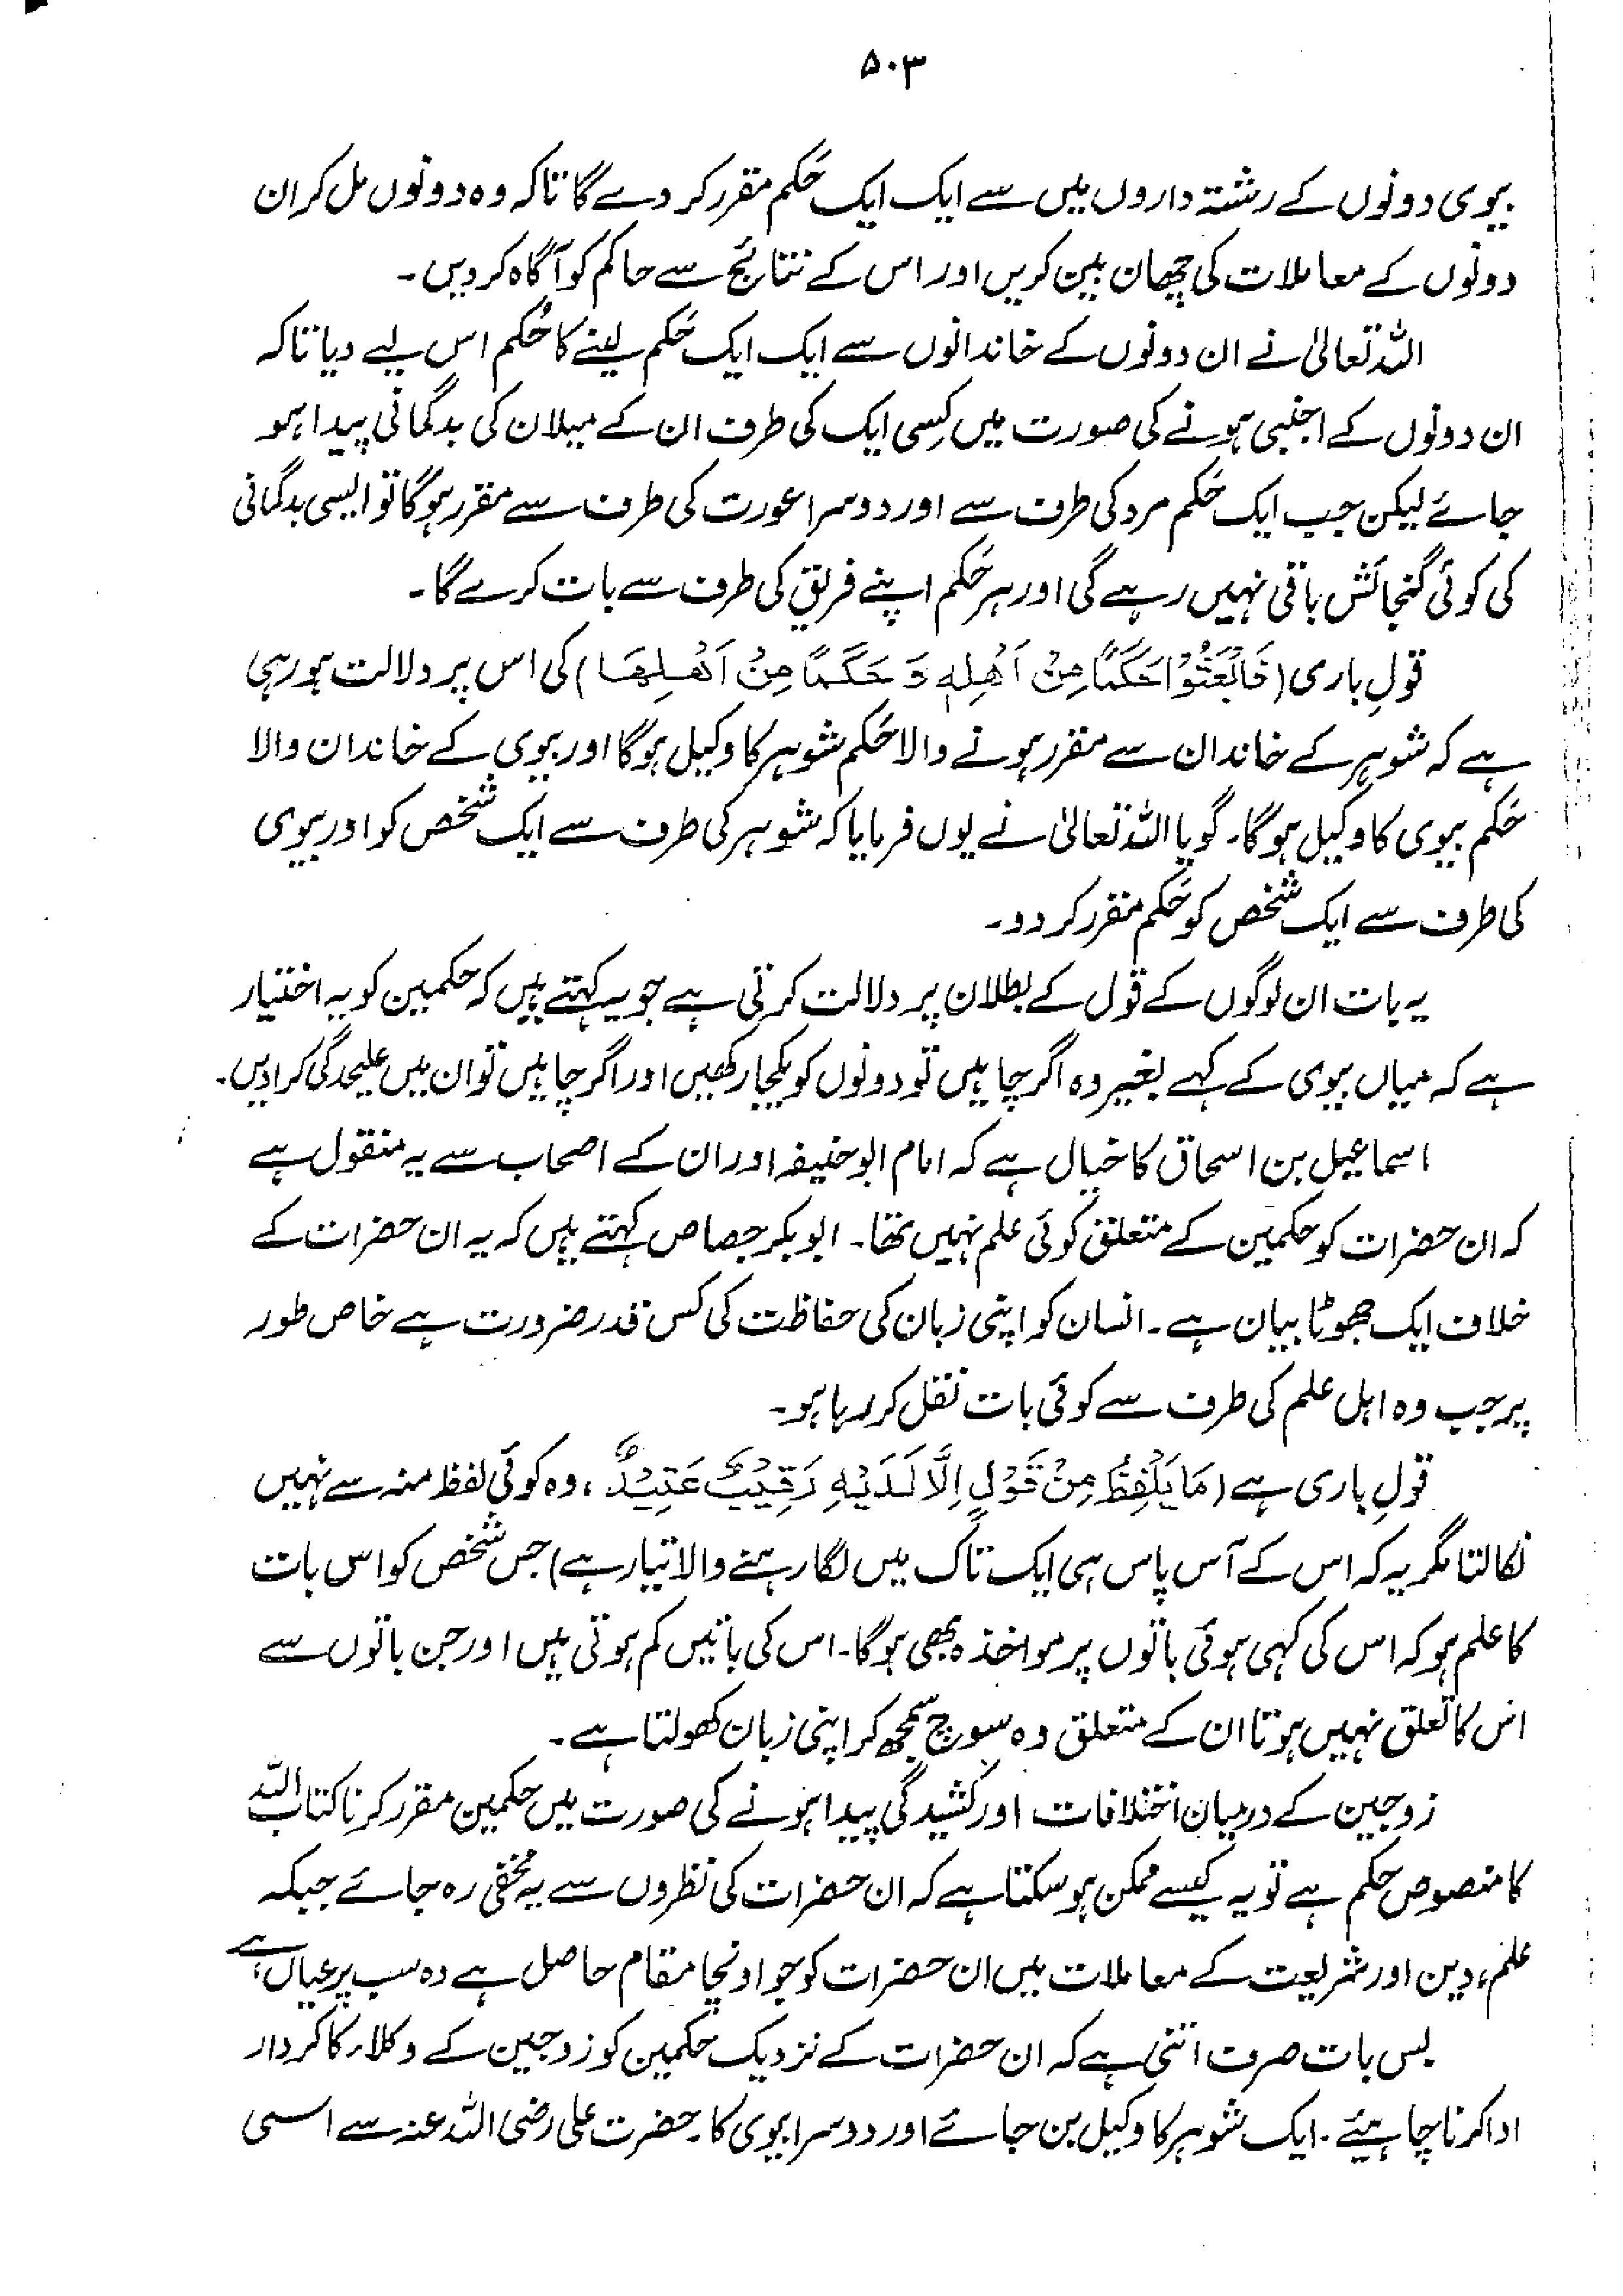 ۵۰۳
بیوی دونوں کے رشتہ داروں میں سے ایک ایک حَکم مقرر کر دے گا تاکہ وہ دونوں مل کر ان
دونوں کے معاملات کی چھان بین کریں اور اس کے نتائج سے حاکم کو آگاہ کر دیں۔
اللہ تعالیٰ نے ان دونوں کے خاندانوں سے ایک ایک حَکم لینے کا حُکم اس لیے دیا تاکہ
ان دونوں کے اجنبی ہونے کی صورت میں کسی ایک کی طرف ان کے میلان کی بدگمانی پیدا ہو
جائے لیکن جب ایک حَکم مرد کی طرف سے اور دوسرا عورت کی طرف سے مقرر ہوگا تو ایسی بدگمانی
کی کوئی گنجائش باقی نہیں رہے گی اور ہر حَکم اپنے فریق کی طرف سے بات کرے گا۔
قولِ باری (فَابْعَثُوْا حَكَمًا مِنْ اَهْلِهٖ وَ حَكَمًا مِنْ اَهْلِهَا) کی اس پر دلالت ہو رہی
ہے کہ شوہر کے خاندان سے مقرر ہونے والا حَکم شوہر کا وکیل ہوگا اور بیوی کے خاندان والا
حَکم بیوی کا وکیل ہوگا۔ گویا اللہ تعالیٰ نے یوں فرمایا کہ شوہر کی طرف سے ایک شخص کو اور بیوی
کی طرف سے ایک شخص کو حَکم مقرر کر دو۔
یہ بات ان لوگوں کے قول کے بطلان پر دلالت کرتی ہے جو یہ کہتے ہیں کہ حکمین کو یہ اختیار
ہے کہ میاں بیوی کے کہے بغیر وہ اگر چاہیں تو دونوں کو یکجا رکھیں اور اگر چاہیں تو ان میں علیحدگی کرا دیں۔
اسماعیل بن اسحاق کا خیال ہے کہ امام ابو حنیفہ اور ان کے اصحاب سے یہ منقول ہے
کہ ان حضرات کو حکمین کے متعلق کوئی علم نہیں تھا۔ ابوبکر جصاص کہتے ہیں کہ یہ ان حضرات کے
خلاف ایک جھوٹا بیان ہے۔ انسان کو اپنی زبان کی حفاظت کی کس قدر ضرورت ہے خاص طور
پر جب وہ اہل علم کی طرف سے کوئی بات نقل کر رہا ہو۔
قولِ باری ہے (مَا يَلْفِظُ مِنْ قَوْلٍ اِلَّا لَدَيْهِ رَقِيْبٌ عَتِيْدٌ، وہ کوئی لفظ منہ سے نہیں
نکالتا مگر یہ کہ اس کے آس پاس ہی ایک تاک میں لگا رہنے والا تیار ہے) جس شخص کو اس بات
کا علم ہو کہ اس کی کہی ہوئی باتوں پر مواخذہ بھی ہوگا۔ اس کی باتیں کم ہوتی ہیں اور جن باتوں سے
اس کا تعلق نہیں ہوتا ان کے متعلق وہ سوچ سمجھ کر اپنی زبان کھولتا ہے۔
زوجین کے درمیان اختلافات اور کشیدگی پیدا ہونے کی صورت میں حکمین مقرر کرنا کتاب اللہ
کا منصوص حکم ہے تو یہ کیسے ممکن ہو سکتا ہے کہ ان حضرات کی نظروں سے یہ مخفی رہ جائے جبکہ
علم، دین اور شریعت کے معاملات میں ان حضرات کو جو اونچا مقام حاصل ہے وہ سب پر عیاں ہے،
بس بات صرف اتنی ہے کہ ان حضرات کے نزدیک حکمین کو زوجین کے وکلاء کا کردار
ادا کرنا چاہیئے۔ ایک شوہر کا وکیل بن جائے اور دوسرا بیوی کا۔ حضرت علی رضی اللہ عنہ سے اسی